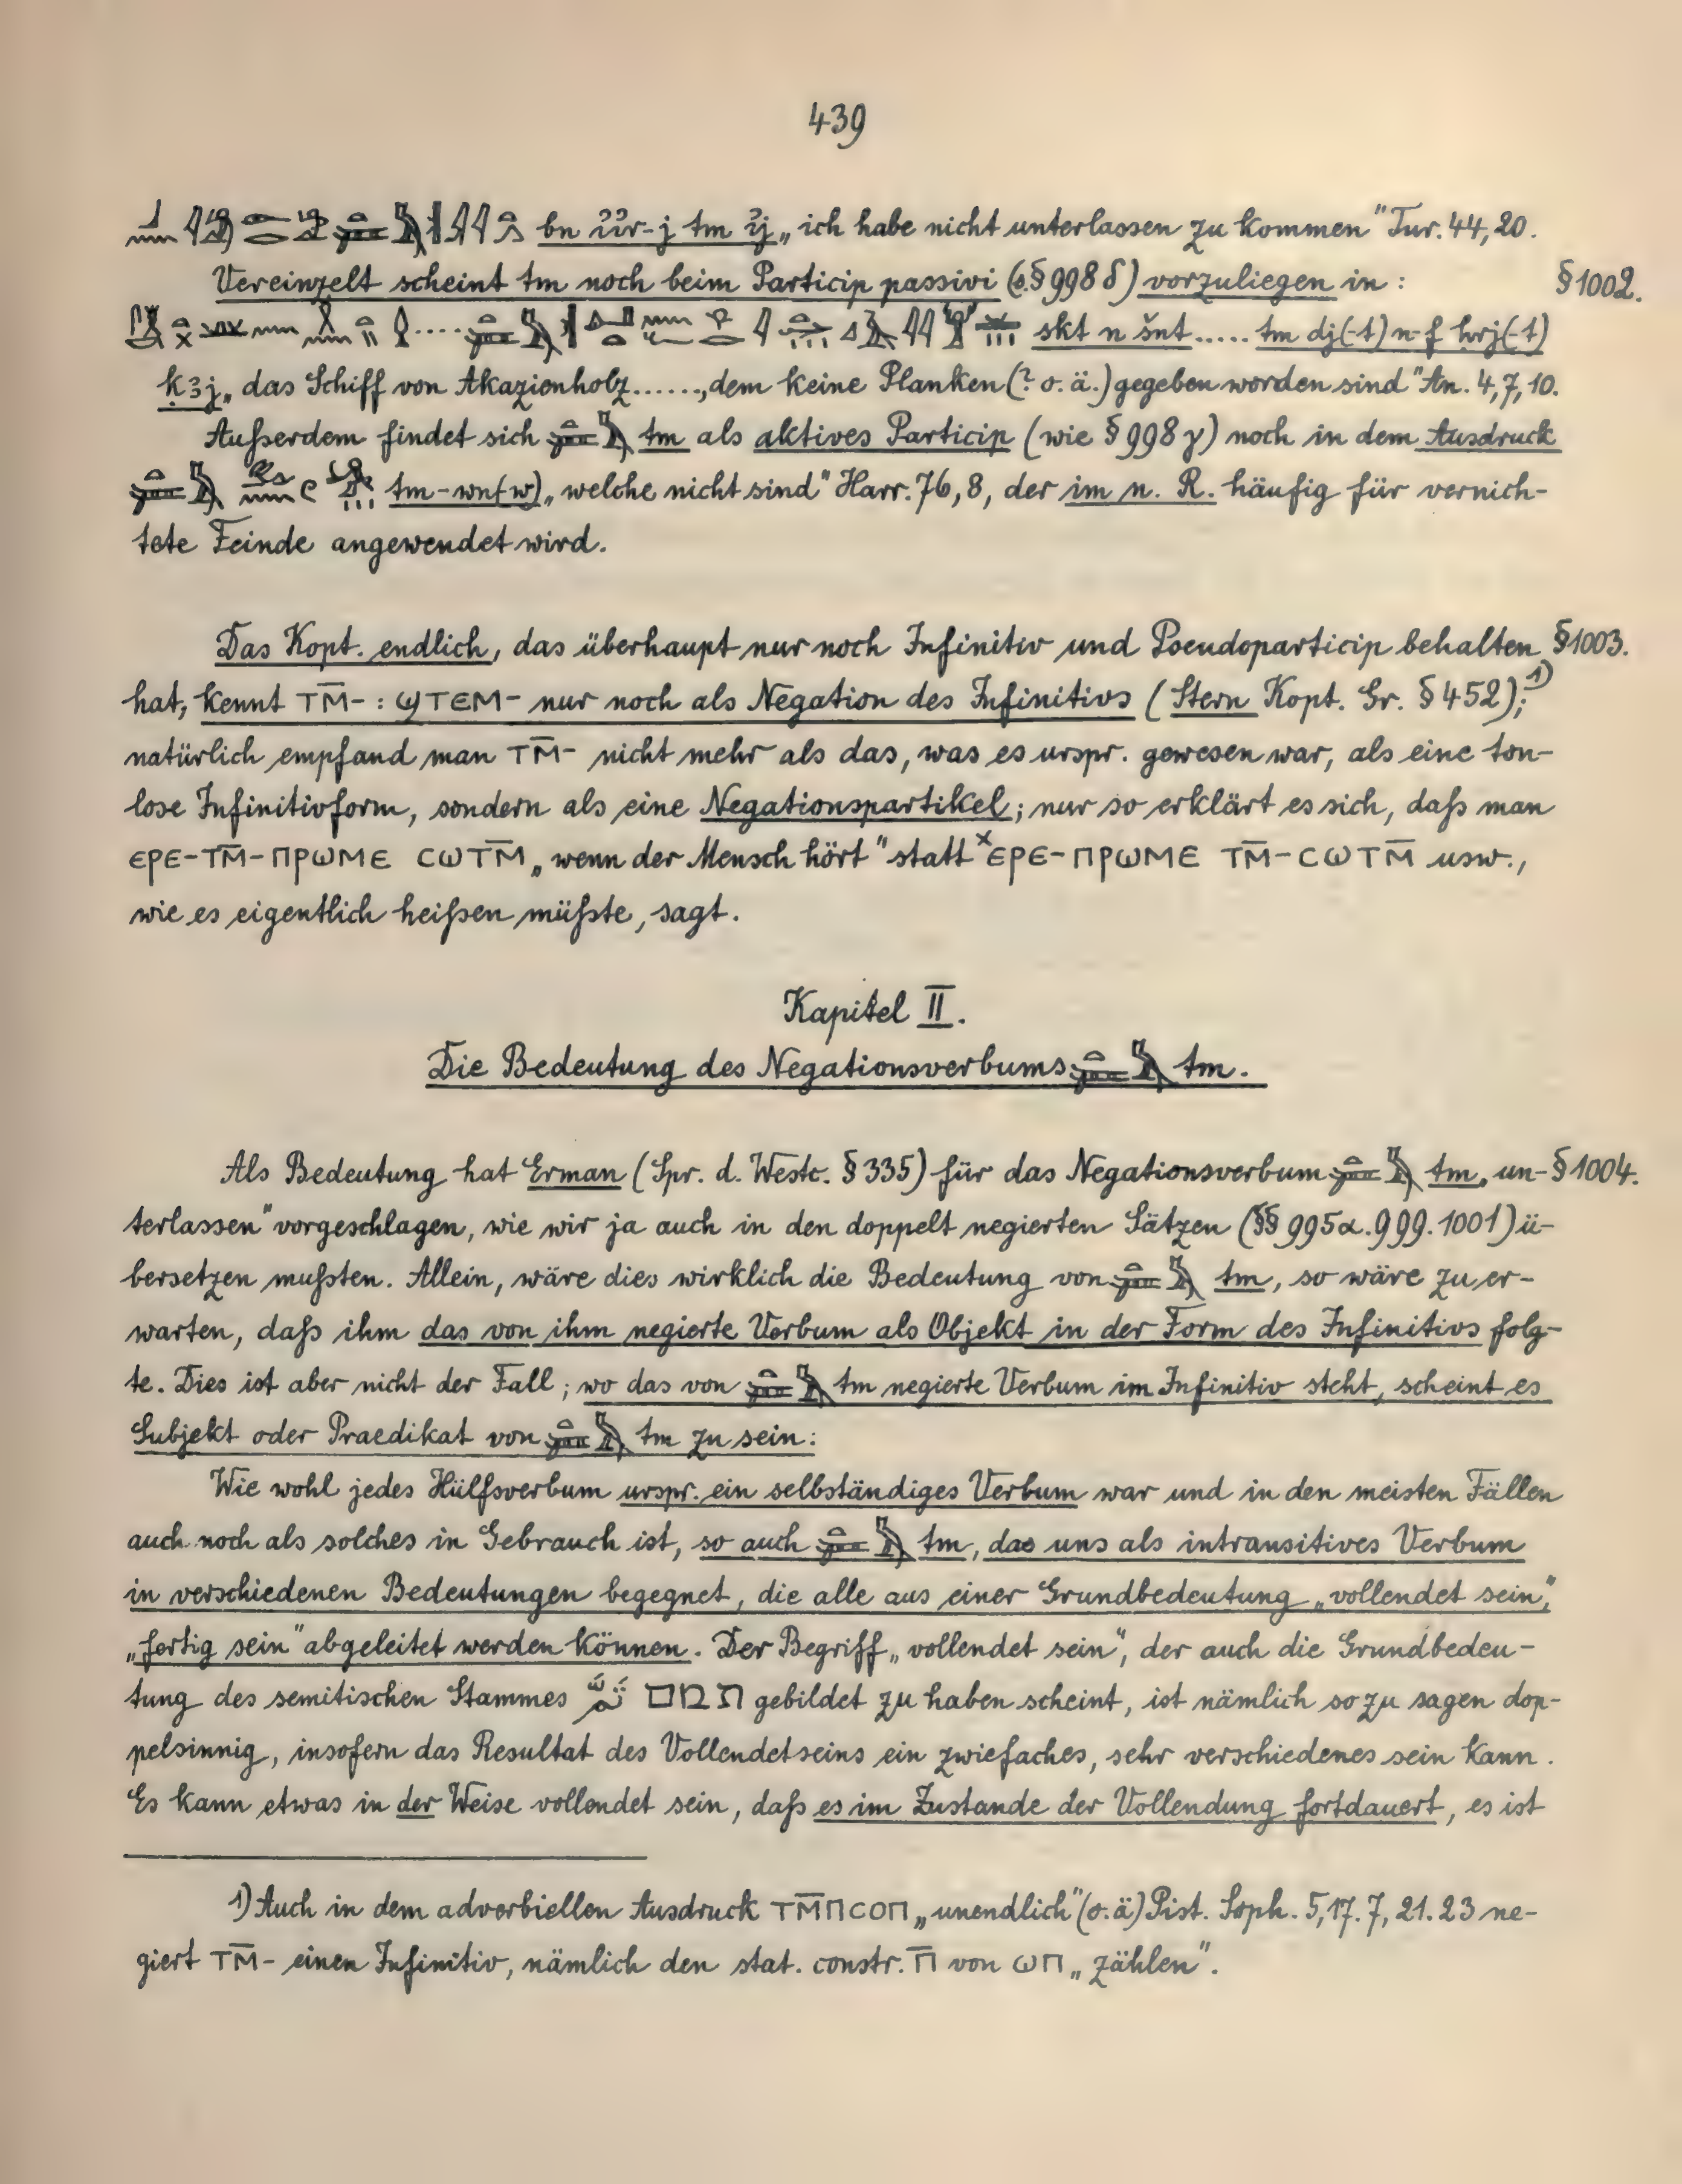 439
bn ꞽꞽr-j tm ꞽj „ich habe nicht unterlassen zu kommen" Tur. 44, 20.
Vereinzelt scheint tm noch beim Particip passivi (s. § 998 δ) vorzuliegen in: § 1002.
skt n šnt ..... tm dj(-t) n-f ḫrj(-t)
k3j „das Schiff von Akazienholz ......, dem keine Planken (? o. ä.) gegeben worden sind" An. 4, 7, 10.
Außerdem findet sich tm als aktives Particip (wie § 998 γ) noch in dem Ausdruck
tm-wn(w) „welche nicht sind" Harr. 76, 8, der im n. R. häufig für vernich-
tete Feinde angewendet wird.
Das Kopt. endlich, das überhaupt nur noch Infinitiv und Pseudoparticip behalten § 1003.
hat, kennt ⲧⲙ̅- : ϣⲧⲉⲙ- nur noch als Negation des Infinitivs (Stern Kopt. Gr. § 452);¹)
natürlich empfand man ⲧⲙ̅- nicht mehr als das, was es urspr. gewesen war, als eine ton-
lose Infinitivform, sondern als eine Negationspartikel; nur so erklärt es sich, daß man
ⲉⲣⲉ-ⲧⲙ̅-ⲡⲣⲱⲙⲉ ⲥⲱⲧⲙ̅ „wenn der Mensch hört" statt ˣⲉⲣⲉ-ⲡⲣⲱⲙⲉ ⲧⲙ̅-ⲥⲱⲧⲙ̅ usw.,
wie es eigentlich heißen müßte, sagt.
Kapitel II.
Die Bedeutung des Negationsverbums tm.
Als Bedeutung hat Erman (Spr. d. Westc. § 335) für das Negationsverbum tm „un- § 1004.
terlassen" vorgeschlagen, wie wir ja auch in den doppelt negierten Sätzen (§§ 995α. 999. 1001) ü-
bersetzen mußten. Allein, wäre dies wirklich die Bedeutung von tm, so wäre zu er-
warten, daß ihm das von ihm negierte Verbum als Objekt in der Form des Infinitivs folg-
te. Dies ist aber nicht der Fall; wo das von tm negierte Verbum im Infinitiv steht, scheint es
Subjekt oder Praedikat von tm zu sein:
Wie wohl jedes Hülfsverbum urspr. ein selbständiges Verbum war und in den meisten Fällen
auch noch als solches in Gebrauch ist, so auch tm, das uns als intransitives Verbum
in verschiedenen Bedeutungen begegnet, die alle aus einer Grundbedeutung „vollendet sein",
„fertig sein" abgeleitet werden können. Der Begriff „vollendet sein", der auch die Grundbedeu-
tung des semitischen Stammes תמם gebildet zu haben scheint, ist nämlich so zu sagen dop-
pelsinnig, insofern das Resultat des Vollendetseins ein zwiefaches, sehr verschiedenes sein kann.
Es kann etwas in der Weise vollendet sein, daß es im Zustande der Vollendung fortdauert, es ist
1) Auch in dem adverbiellen Ausdruck ⲧⲙ̅ⲡⲥⲟⲡ „unendlich" (o. ä) Pist. Soph. 5, 17. 7, 21. 23 ne-
giert ⲧⲙ̅- einen Infinitiv, nämlich den stat. constr. ⲡ̅ von ⲱⲡ „zählen".